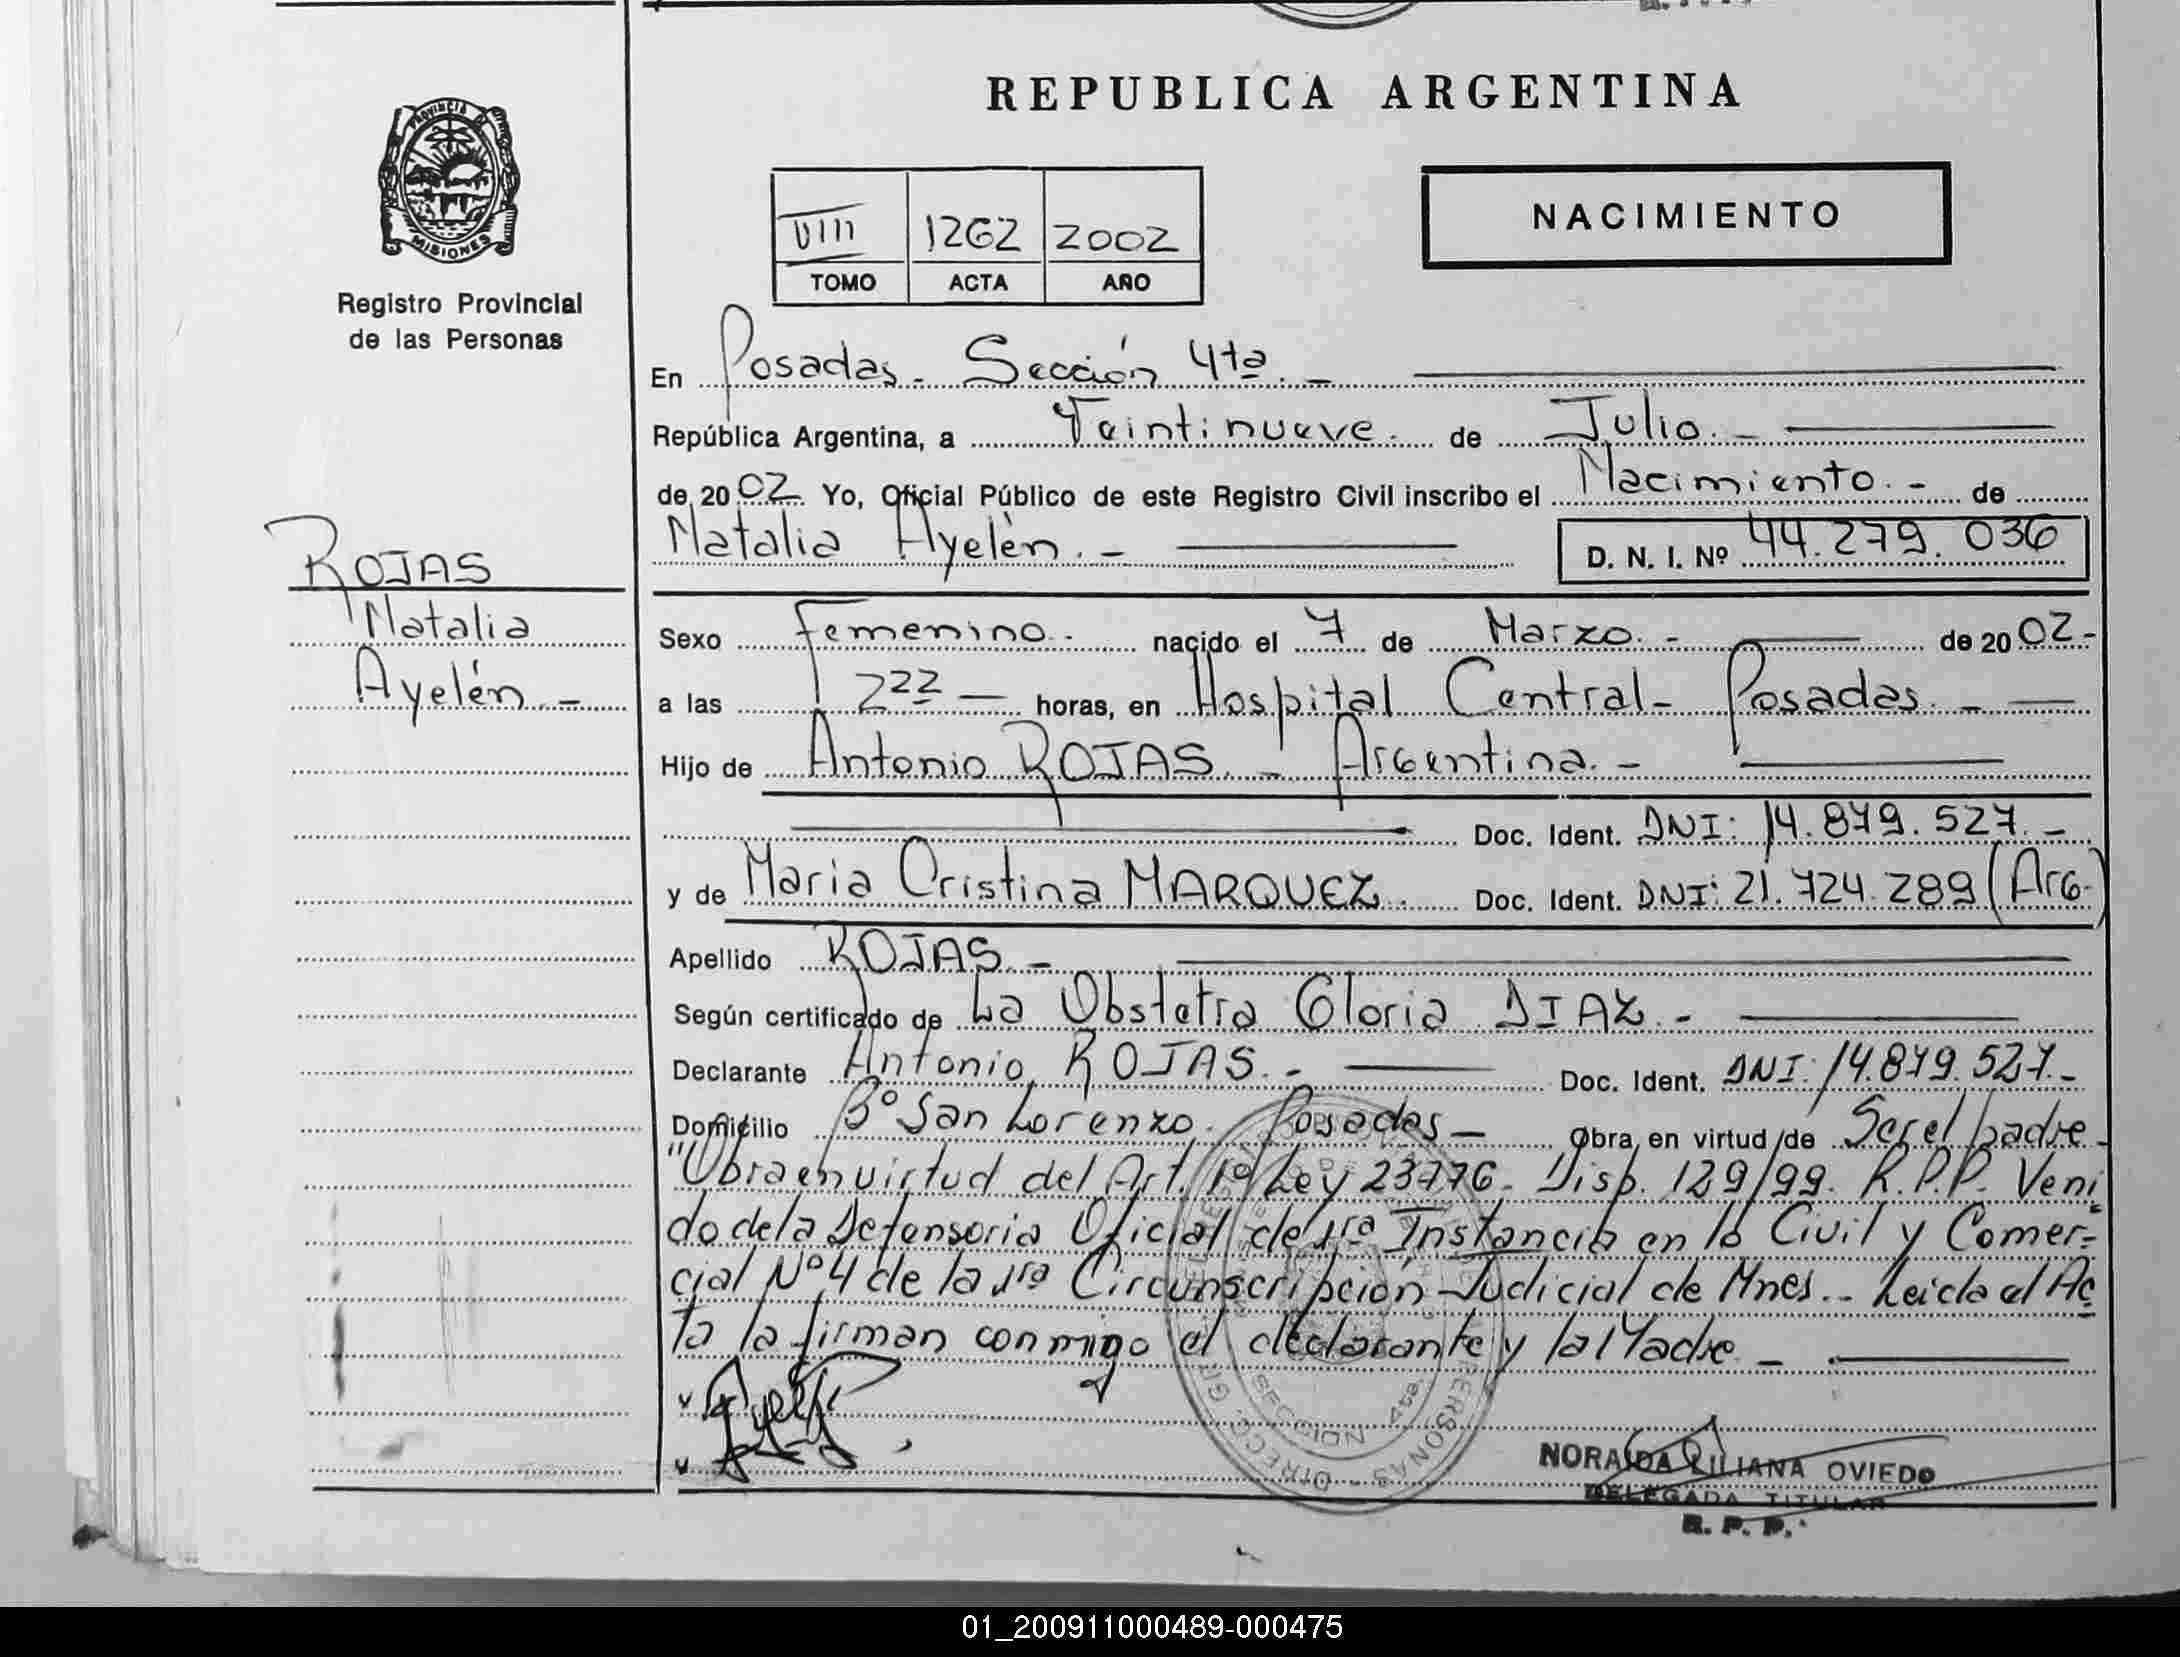 REPUBLICA ARGENTINA
PROVINCIA DE
MISIONES
Registro Provincial
de las Personas
VIII 1262 2002
TOMO ACTA AÑO
NACIMIENTO
En Posadas - Sección 4ta. -
República Argentina, a Veintinueve. de Julio. -
de 2002. Yo, Oficial Público de este Registro Civil inscribo el Nacimiento. - de
Natalia Ayelén. - D. N. I. Nº 44.279.036
ROJAS
Natalia
Ayelén. -
Sexo Femenino. - nacido el 7 de Marzo. - de 2002-
a las 2 22 - horas, en Hospital Central - Posadas. -
Hijo de Antonio ROJAS. - Argentina. -
Doc. Ident. DNI: 14.879.527. -
y de Maria Cristina MARQUEZ. Doc. Ident. DNI: 21.724.289 (Arg.)
Apellido ROJAS. -
Según certificado de La Obstetra Gloria DIAZ. -
Declarante Antonio ROJAS. - Doc. Ident. DNI: 14.879.527. -
Domicilio Bº San Lorenzo. Posadas - Obra en virtud de Ser el padre -
"Obra en virtud del Art. 1º Ley 23776 - Disp. 129/99. R.P.P. Veni
do de la Defensoria Oficial de 1ra Instancia en lo Civil y Comer-
cial Nº 4 de la 1ra Circunscripción Judicial de Mnes.. Leida el Ac
ta la firman conmigo el declarante y la Madre -
SECCION 4ta
NORAIDA LILIANA OVIEDO
DELEGADA TITULAR
R. P. P.
01_200911000489-000475